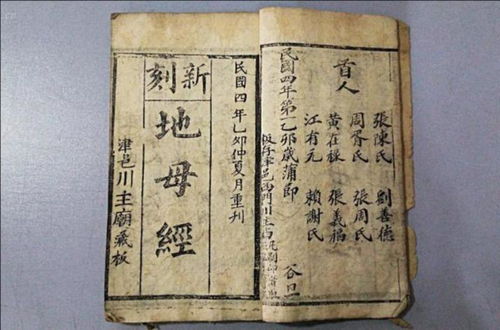 首人
張陳氏 劉善德
周胥氏 張周氏
黃在祿 張義福
江有元 賴謝氏
民國四年第一乙卯歲蒲節
邑西門川主
谷旦
民國四年乙卯仲夏月重刊
新刻
地母經
津邑川主廟藏板